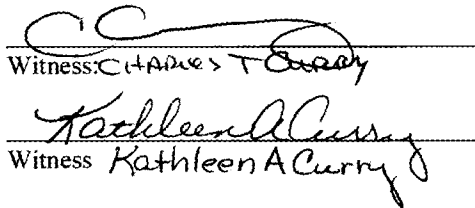 Witness: CHARLES T CURRY
Kathleen A Curry
Witness Kathleen A Curry